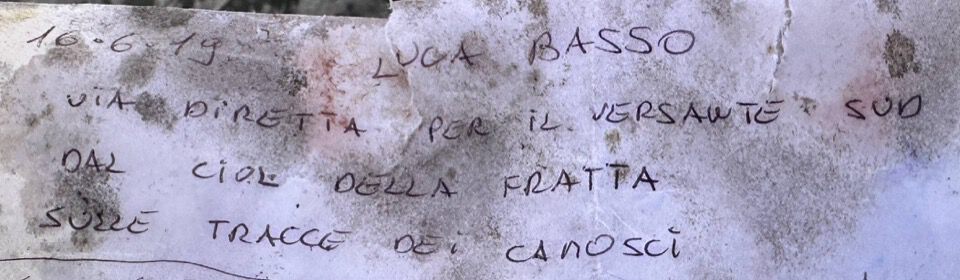 16.6.19 LUCA BASSO
VIA DIRETTA PER IL VERSANTE SUD
DAL CIOL DELLA FRATTA
SULLE TRACCE DEI CAMOSCI